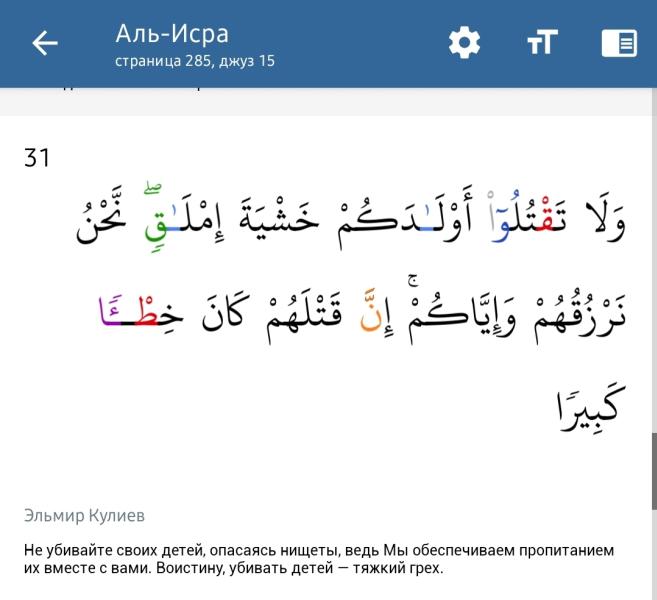 Аль-Исра
страница 285, джуз 15
31
وَلَا تَقْتُلُوٓا۟ أَوْلَـٰدَكُمْ خَشْيَةَ إِمْلَـٰقٍۢ ۖ نَّحْنُ
نَرْزُقُهُمْ وَإِيَّاكُمْ ۚ إِنَّ قَتْلَهُمْ كَانَ خِطْـًۭٔا
كَبِيرًۭا
Эльмир Кулиев
Не убивайте своих детей, опасаясь нищеты, ведь Мы обеспечиваем пропитанием
их вместе с вами. Воистину, убивать детей — тяжкий грех.